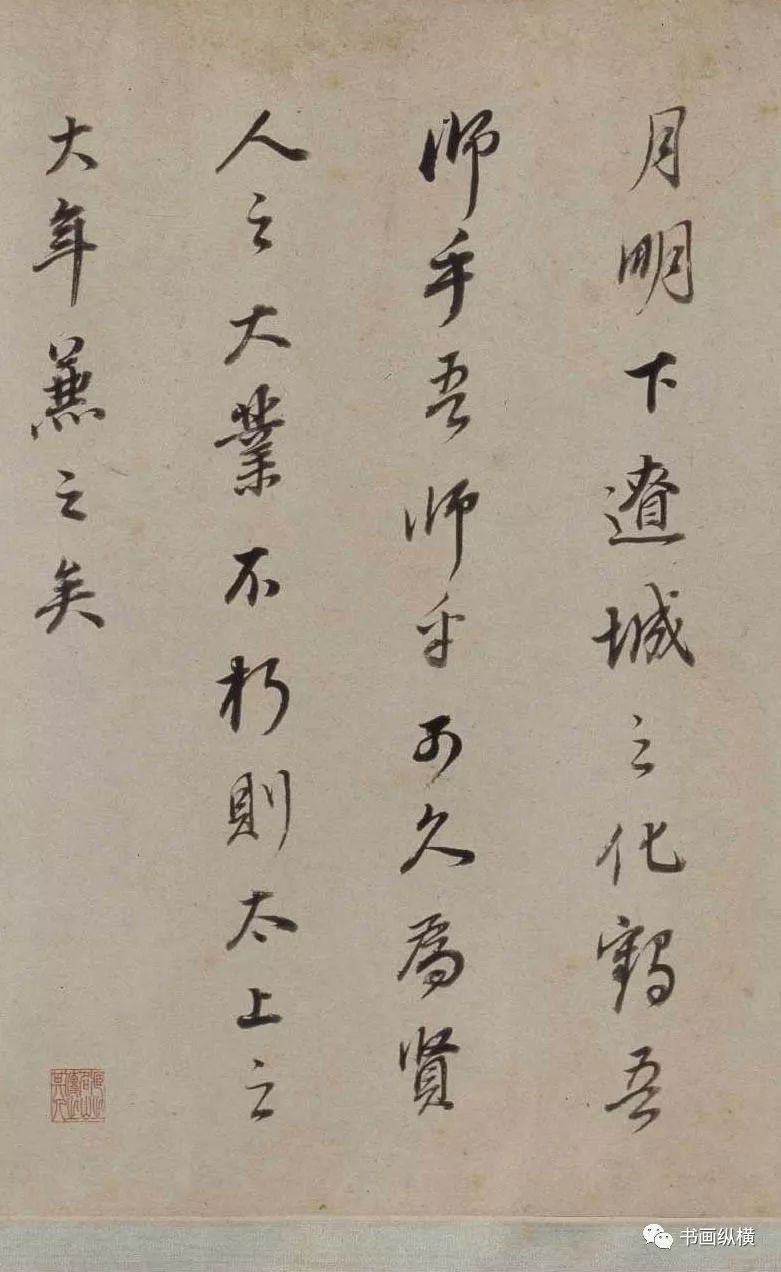 月明下遼城之化鶴吾
師乎吾師乎可久為賢
人之大業不朽則太上之
大年兼之矣
书画纵横